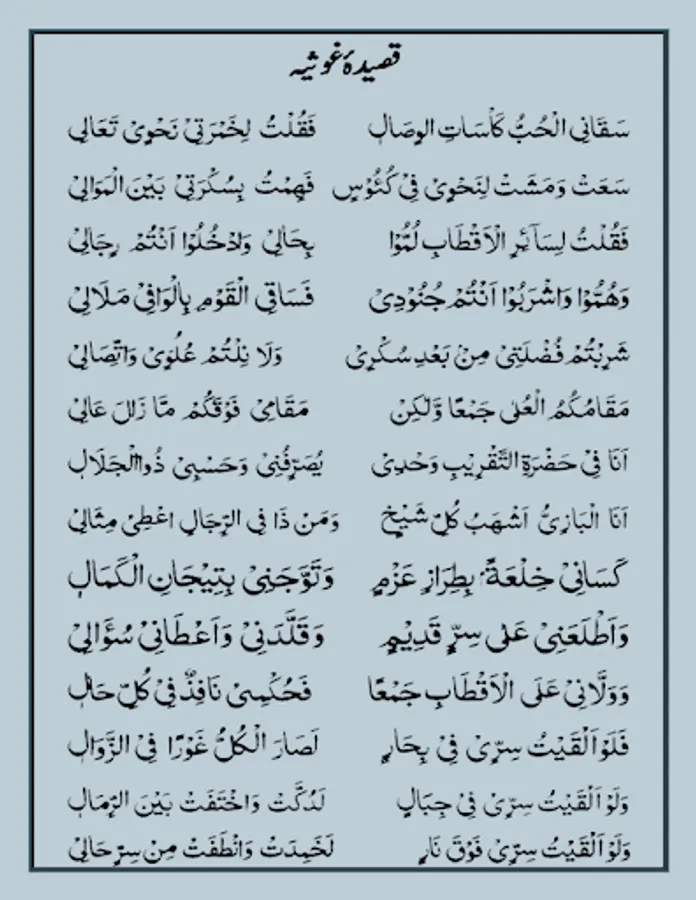 قصیدۂ غوثیہ
سَقَانِی الْحُبُّ كَأْسَاتِ الوِصَالِ فَقُلْتُ لِخَمْرَتِیْ نَحْوِیْ تَعَالِی
سَعَتْ وَمَشَتْ لِنَحْوِیْ فِیْ كُئُوْسٍ فَهِمْتُ بِسُكْرَتِیْ بَیْنَ الْمَوَالِیْ
فَقُلْتُ لِسَآئِرِ الْاَقْطَابِ لُمُّوْا بِحَالِیْ وَادْخُلُوْا اَنْتُمْ رِجَالِیْ
وَهُمُّوْا وَاشْرَبُوْا اَنْتُمْ جُنُوْدِیْ فَسَاقِی الْقَوْمِ بِالْوَافِیْ مَلَالِیْ
شَرِبْتُمْ فُضْلَتِیْ مِنْۢ بَعْدِ سُكْرِیْ وَلَا نِلْتُمْ عُلُوِّیْ وَاتِّصَالِیْ
مَقَامُكُمُ الْعُلٰی جَمْعًا وَّلٰكِنْ مَقَامِیْ فَوْقَكُمْ مَّا زَلَ عَالِیْ
اَنَا فِیْ حَضْرَةِ التَّقْرِیْبِ وَحْدِیْ یُصَرِّفُنِیْ وَحَسْبِیْ ذُوالْجَلَالِ
اَنَا الْبَازِیُّ اَشْهَبُ كُلِّ شَیْخٍ وَمَنْ ذَا فِی الرِّجَالِ اعْطِیْ مِثَالِیْ
كَسَانِیْ خِلْعَةً بِطِرَازِ عَزْمٍ وَتَوَّجَنِیْ بِتِیْجَانِ الْكَمَالِ
وَاَطْلَعَنِیْ عَلٰی سِرٍّ قَدِیْمٍ وَقَلَّدَنِیْ وَاَعْطَانِیْ سُؤَالِیْ
وَوَلَّانِیْ عَلَی الْاَقْطَابِ جَمْعًا فَحُكْمِیْ نَافِذٌ فِیْ كُلِّ حَالٍ
فَلَوْ اَلْقَیْتُ سِرِّیْ فِیْ بِحَارٍ لَصَارَ الْكُلُّ غَوْرًا فِی الزَّوَالِ
وَلَوْ اَلْقَیْتُ سِرِّیْ فِیْ جِبَالٍ لَدُكَّتْ وَاخْتَفَتْ بَیْنَ الرِّمَالِ
وَلَوْ اَلْقَیْتُ سِرِّیْ فَوْقَ نَارٍ لَخَمِدَتْ وَانْطَفَتْ مِنْ سِرِّ حَالِیْ